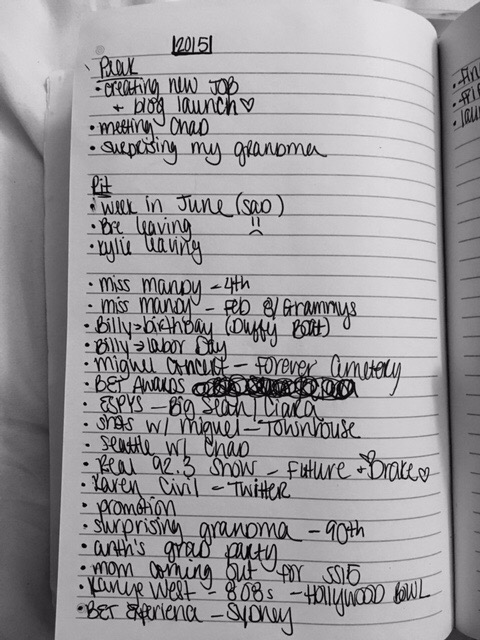 2015
Peak
• creating new JOB
+ blog launch♡
• meeting Chad
• surprising my grandma
Pit
• 1 week in June (sad)
• Bre leaving
• kylie leaving
• miss mandy - 4th
• miss mandy - Feb @ Grammys
• Billy → birthday (Duffy Boat)
• Billy → labor Day
• miguel concert - Forever Cemetery
• BET Awards
• ESPYS - Big Sean/Ciara
• shots w/ miguel - Townhouse
• Seattle w/ Chad
• Real 92.3 show - Future + Drake♡
• Karen Civil - Twitter
• promotion
• surprising grandma - 90th
• anth's grad party
• mom coming out for SS15
• Kanye West - 808s - Hollywood Bowl
• BET Experience - Sydney